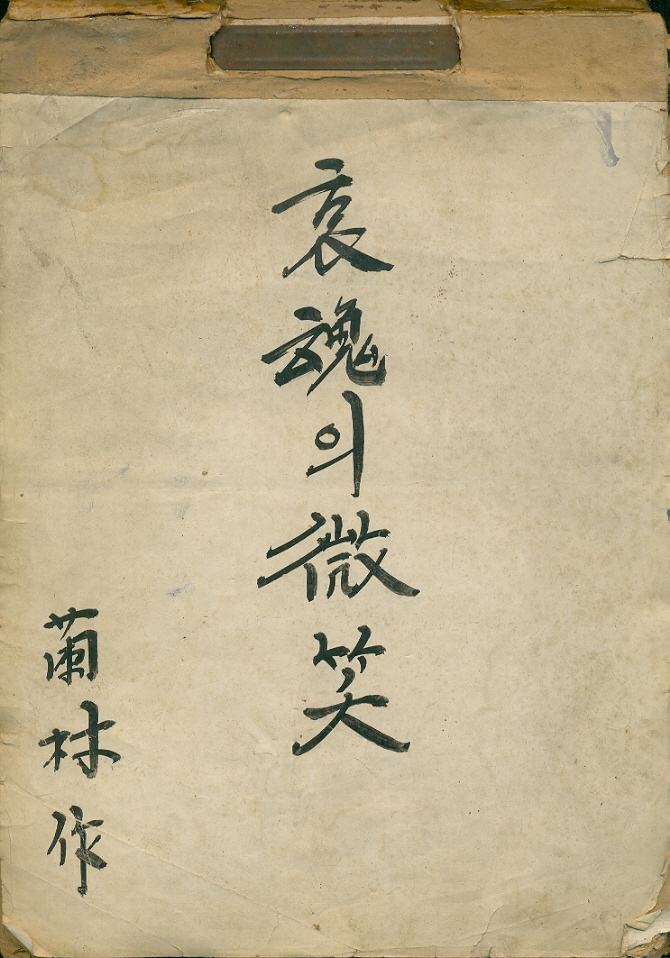 哀魂의微笑
蘭林作